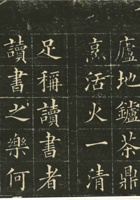 廬地鑪茶鼎
烹活火一清
足稱讀書者
讀書之樂何